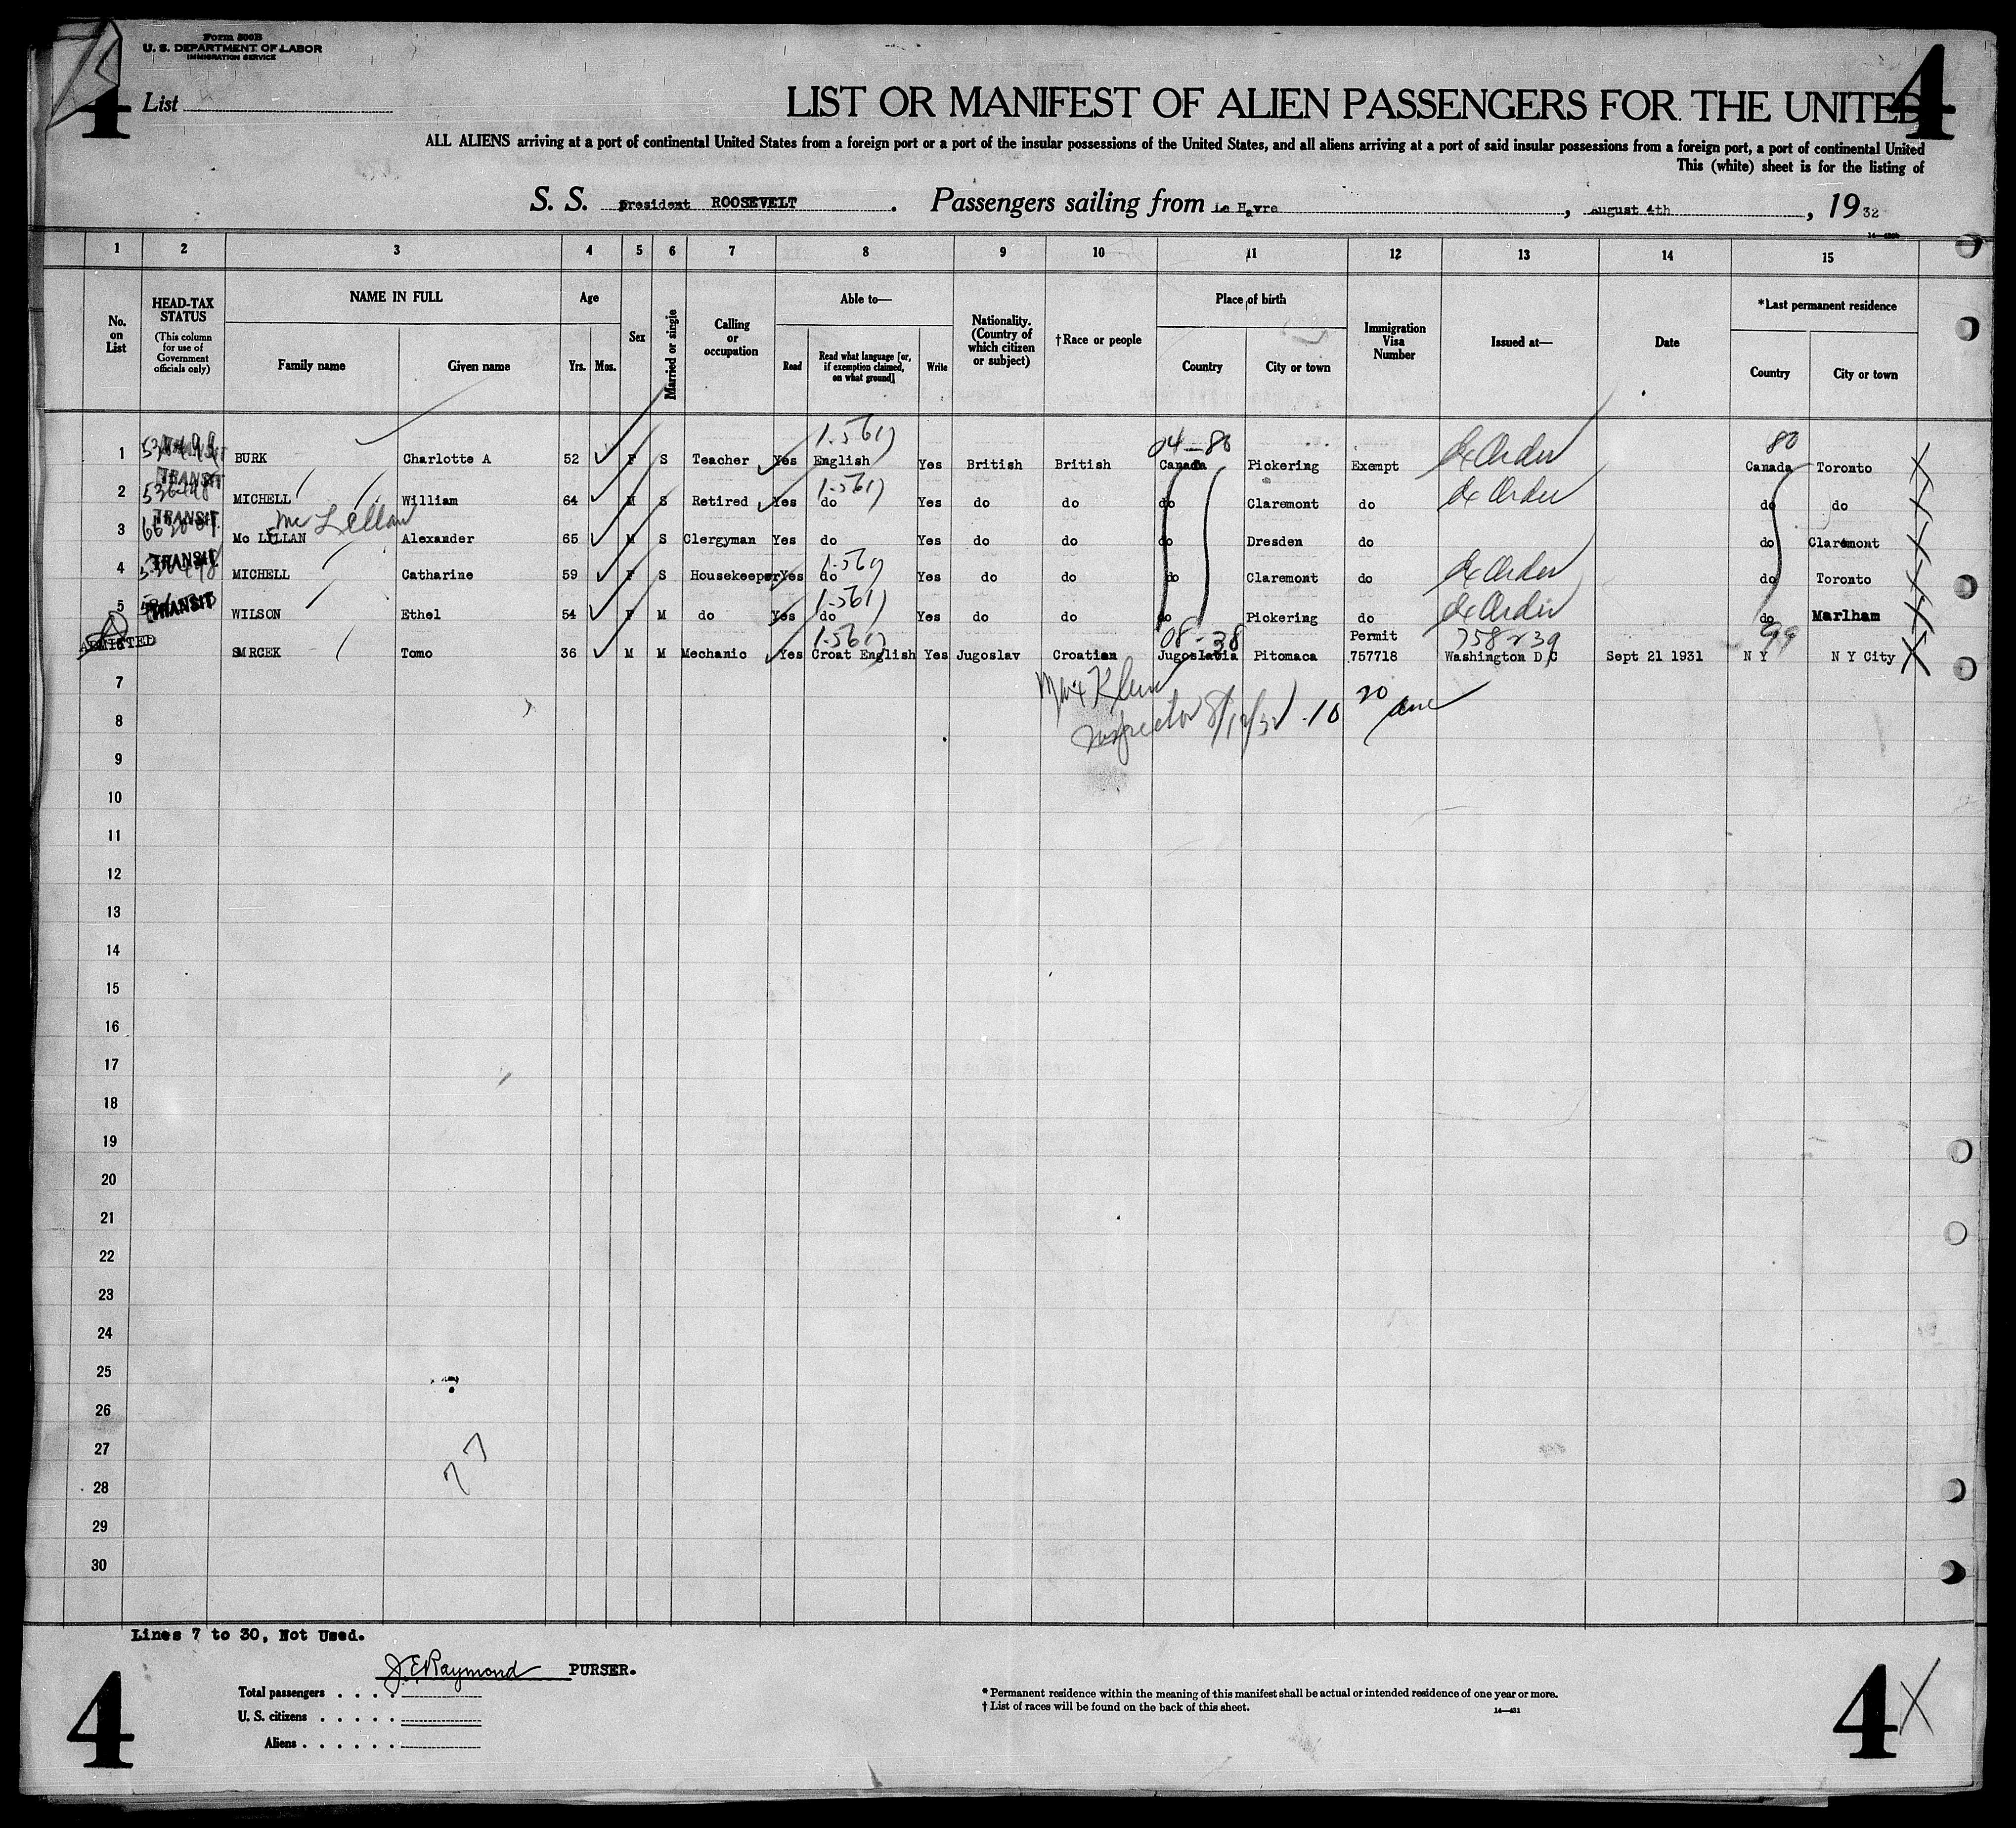 Form 500B
U. S. DEPARTMENT OF LABOR
IMMIGRATION SERVICE
4 List
4
LIST OR MANIFEST OF ALIEN PASSENGERS FOR THE UNITED
ALL ALIENS arriving at a port of continental United States from a foreign port or a port of the insular possessions of the United States, and all aliens arriving at a port of said insular possessions from a foreign port, a port of continental United
This (white) sheet is for the listing of
S. S. President ROOSEVELT. Passengers sailing from Le Havre, August 4th, 19 32
1 2 3 4 5 6 7 8 9 10 11 12 13 14 15
No. on List
HEAD-TAX STATUS
(This column for use of Government officials only)
NAME IN FULL
Family name Given name
Age
Yrs. Mos.
Sex
Married or single
Calling or occupation
Able to—
Read
Read what language [or, if exemption claimed, on what ground]
Write
Nationality. (Country of which citizen or subject)
†Race or people
Place of birth
Country City or town
Immigration Visa Number
Issued at—
Date
*Last permanent residence
Country City or town
1-561) 04-80 80
1 BURK Charlotte A 52 F S Teacher Yes English Yes British British Canada Pickering Exempt Canada Toronto
TRANSIT 1-561)
2 MICHELL William 64 M S Retired Yes do Yes do do do Claremont do do do
TRANSIT Mc Lellan
3 Mc LELLAN Alexander 65 M S Clergyman Yes do Yes do do do Dresden do do Claremont
TRANSIT 1-561)
4 MICHELL Catharine 59 F S Housekeeper Yes do Yes do do do Claremont do do Toronto
TRANSIT 1-561)
5 WILSON Ethel 54 F M do Yes do Yes do do do Pickering do do Marlham
ADMITTED 1-561) 08-38 Permit 758239 99
SMRCEK Tomo 36 M M Mechanic Yes Croat English Yes Jugoslav Croatian Jugoslavia Pitomaca 757718 Washington D C Sept 21 1931 N Y N Y City
7
Inspector 8/12/32 10 20 am
8
9
10
11
12
13
14
15
16
17
18
19
20
21
22
23
24
25
26
27
28
29
30
Lines 7 to 30, Not Used.
J. E. Raymond PURSER.
Total passengers . . . .
U. S. citizens . . . . .
Aliens . . . . . .
* Permanent residence within the meaning of this manifest shall be actual or intended residence of one year or more.
† List of races will be found on the back of this sheet.
14—431
4
4 X